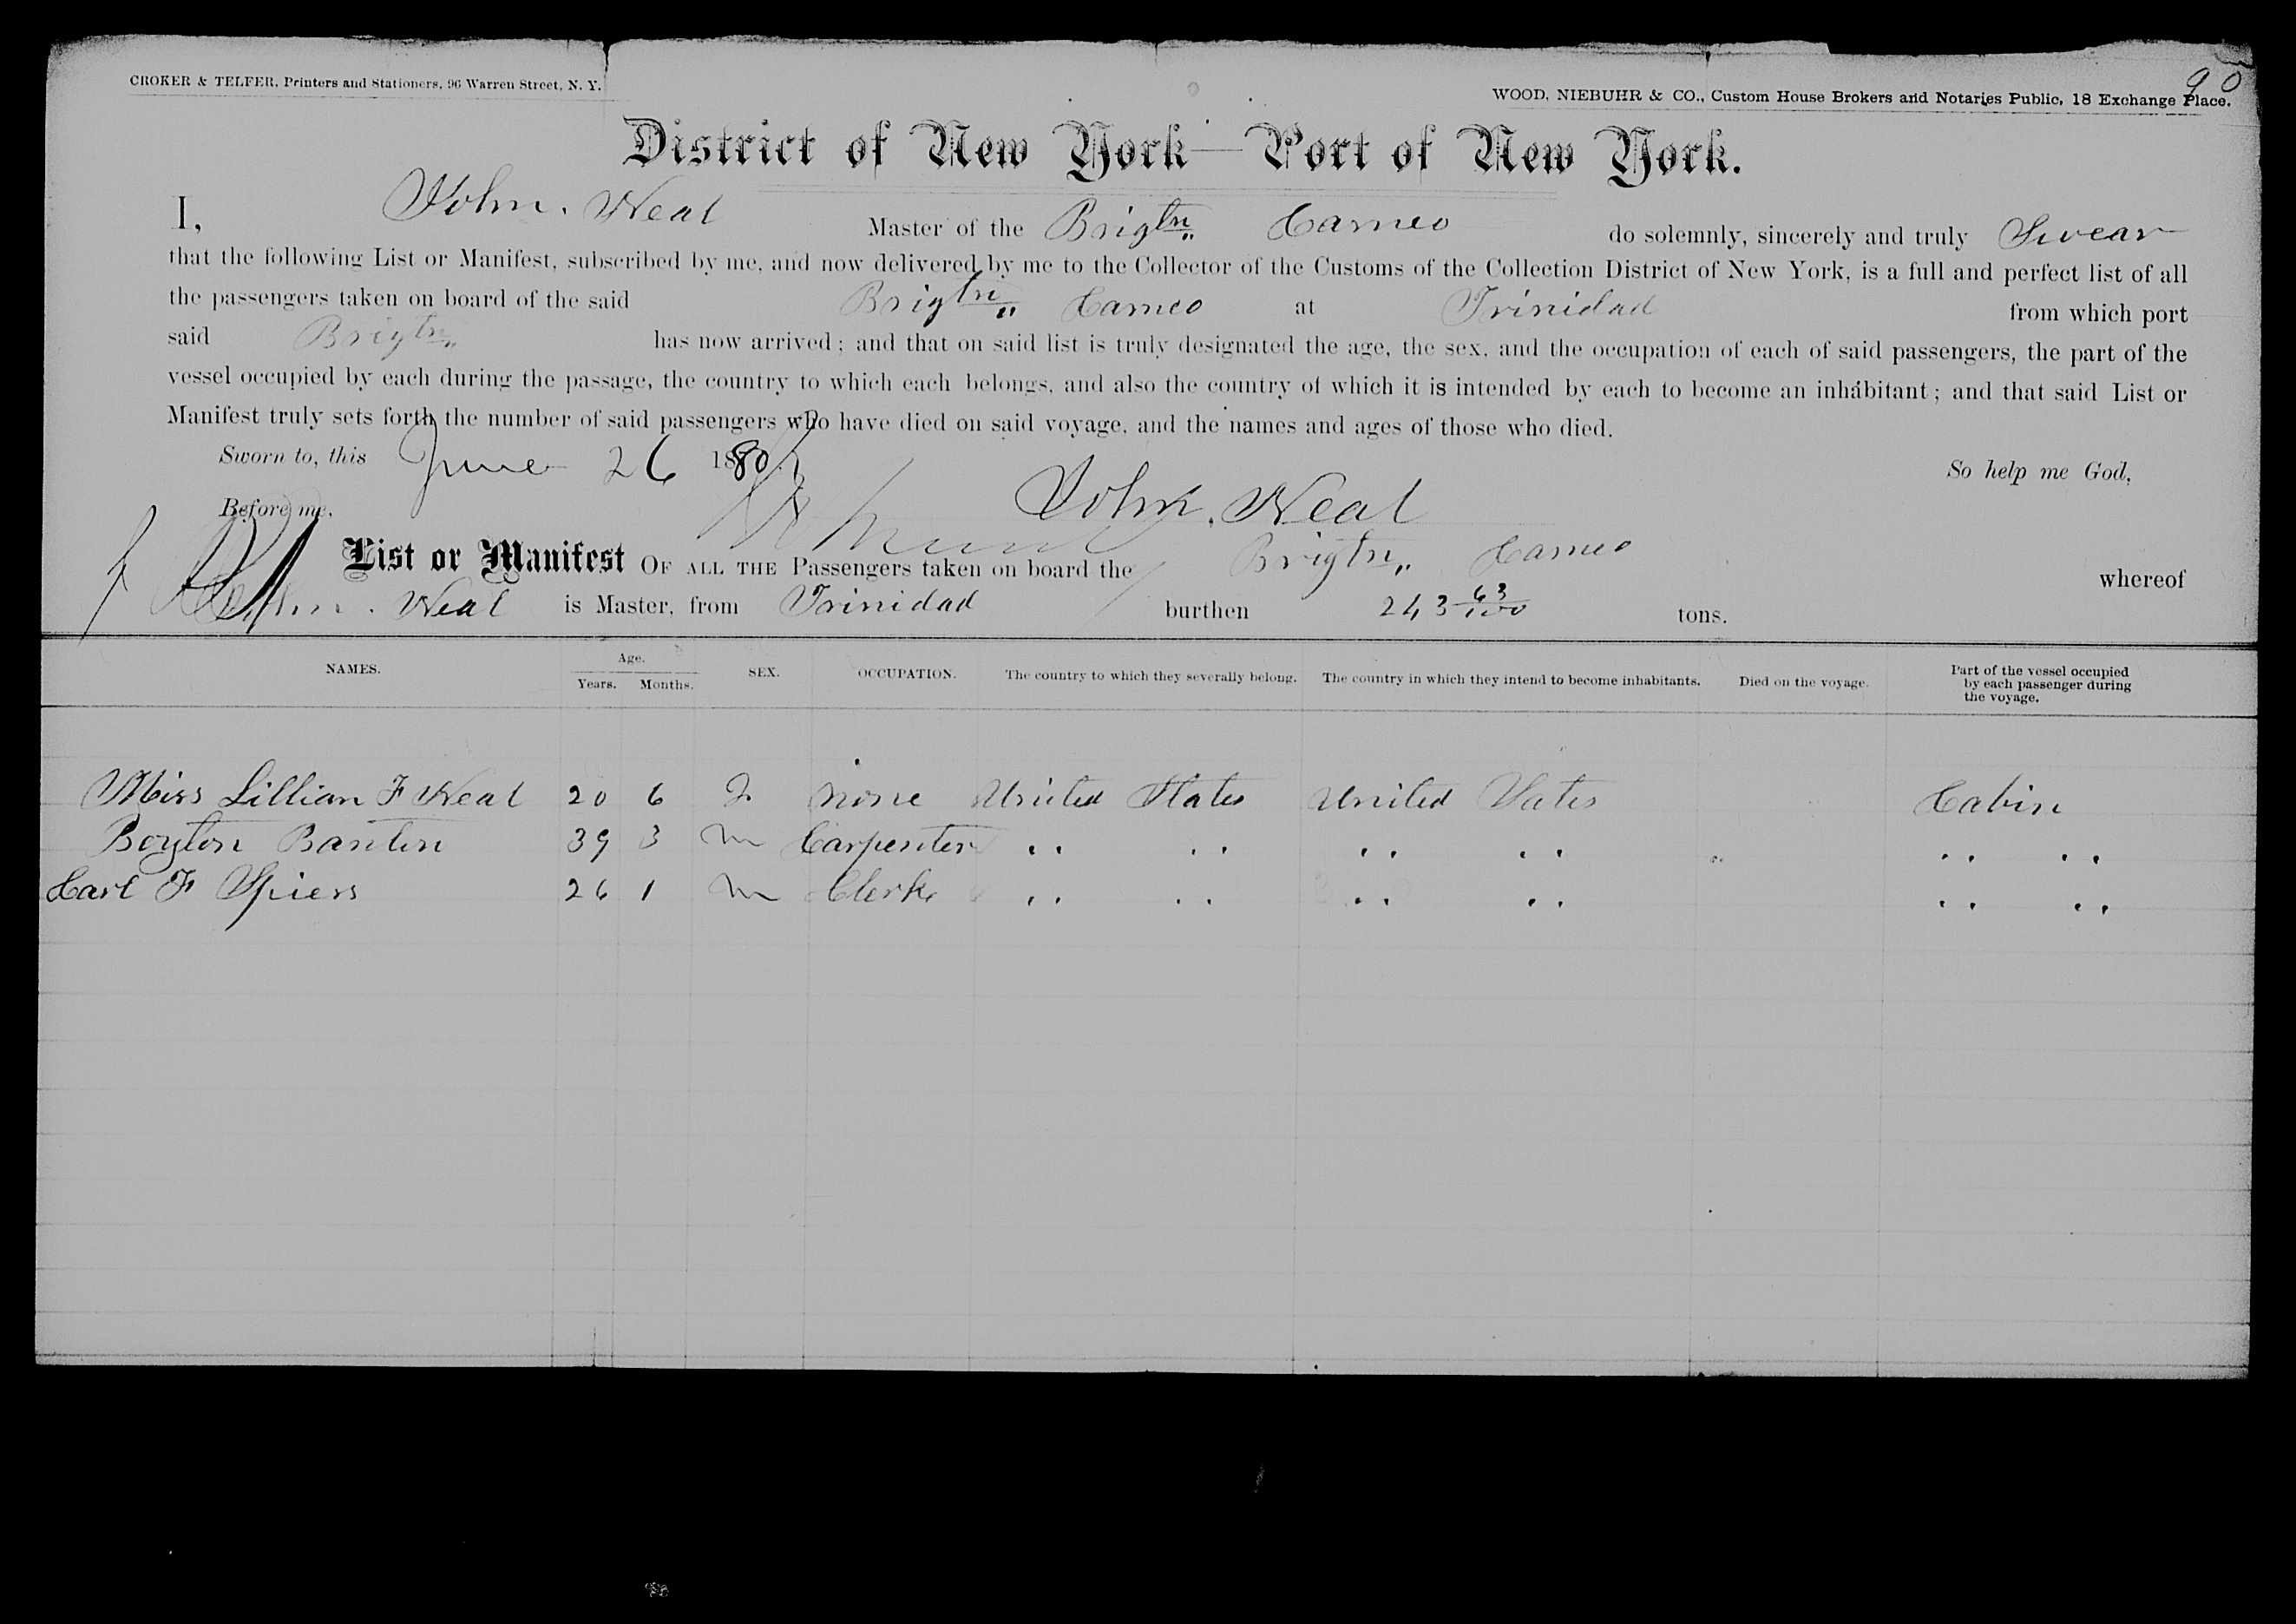 90
CROKER & TELFER, Printers and Stationers, 96 Warren Street, N. Y.
WOOD, NIEBUHR & CO., Custom House Brokers and Notaries Public, 18 Exchange Place.
District of New York—Port of New York.
I, John. Neal Master of the Brigtn Cameo do solemnly, sincerely and truly Swear
that the following List or Manifest, subscribed by me, and now delivered by me to the Collector of the Customs of the Collection District of New York, is a full and perfect list of all
the passengers taken on board of the said Brigtn Cameo at Trinidad from which port
said Brigtn has now arrived; and that on said list is truly designated the age, the sex, and the occupation of each of said passengers, the part of the
vessel occupied by each during the passage, the country to which each belongs, and also the country of which it is intended by each to become an inhabitant; and that said List or
Manifest truly sets forth the number of said passengers who have died on said voyage, and the names and ages of those who died.
Sworn to, this June 26 1880 So help me God,
Before me, John. Neal
List or Manifest OF ALL THE Passengers taken on board the Brigtn Cameo whereof
John. Neal is Master, from Trinidad burthen 243 63/100 tons.
NAMES. Age. Years. Months. SEX. OCCUPATION. The country to which they severally belong. The country in which they intend to become inhabitants. Died on the voyage. Part of the vessel occupied by each passenger during the voyage.
Miss Lillian F Neal 20 6 F none United States United States Cabin
Boyton Banton 39 3 m Carpenter " " " " " "
Carl F Spiers 26 1 m Clerk " " " " " "